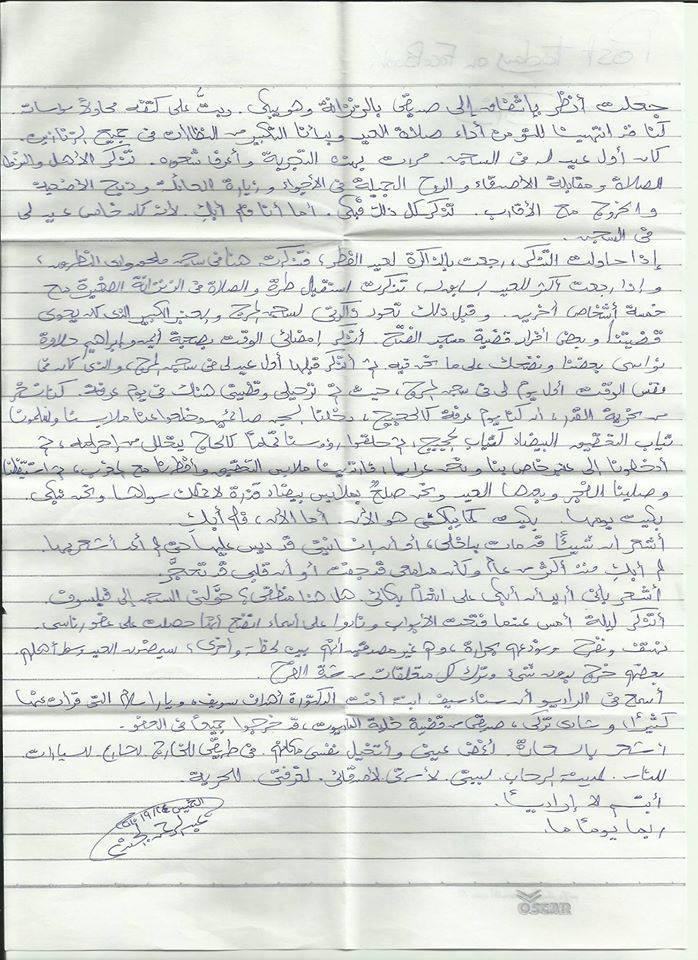 جعلت أنظر بإشفاق إلى صديقي بالزنزانة وهو يبكي. ربتُّ على كتفه محاولاً مواساته.
كنا قد انتهينا للتو من أداء صلاة العيد وبدأنا التكبير من النظارات في جميع الزنازين.
كان أول عيد له في السجن. مررت بهذه التجربة وأعرف شعوره. تذكر الأهل و
الصلاة ومقابلة الأصدقاء والروح الجميلة في الأجواء وزيارة العائلات وذبح الأضحية
والخروج مع الأقارب. تذكر كل ذلك فبكى. أما أنا فلم أبكِ. لأنه كان خامس عيد لي
في السجن.
إذا حاولت التذكر، رجعت بالذاكرة لعيد الفطر، فتذكرت هنا في سجن ملحق وادي النطرون،
وإذا رجعت أكثر للعيد السابق، تذكرت استقبال طرة والصلاة في الزنزانة الصغيرة مع
خمسة أشخاص آخرين. وقبل ذلك تعود ذاكرتي لسجن المرج والعنبر الكبير الذي كان يحوي
قضيتنا وبعض أفراد قضية مسجد الفتح. أتذكر إمضائي الوقت بصحبة أيمن وإبراهيم حلاوة
نواسي بعضنا ونضحك على ما نحن فيه ثم أتذكر قبلها أول عيد لي في سجن المرج، والذي كان في
نفس الوقت أول يوم لي في سجن المرج، حيث تم ترحيلي وقضيتي هناك في يوم عرفة. كنا نسخر
من سخرية القدر، أن كنا يوم عرفة كالحجيج، دخلنا السجن صائمين وخلعوا عنا ملابسنا ولبسنا
ثياب التحقيق البيضاء كثياب الحجيج، ثم حلقوا رؤوسنا تماماً كالحاج يتحلل من إحرامه، ثم
أدخلونا إلى عنبر خاص بنا ونحن عرايا، فارتدينا ملابس التحقيق وأفطرنا مع المغرب، ثم استيقظنا
وصلينا الفجر وبعدها العيد ونحن صلعٌ بملابس بيضاء قذرة لا نملك سواها ونحن نبكي.
بكيت يومها. بكيت كما يبكي هو الآن. أما الآن، فلم أبكِ.
أشعر أن شيئاً قد مات بداخلي، أو أن إنسانيتي قد ديس عليها حتى لم أعد أشعر بها.
لم أبكِ منذ أكثر من عام وكأن مدامعي قد جفت أو أن قلبي قد تحجَّر
أشعر بأني أريد أن أبكي على انعدام بكائي. هل هذا منطقي؟ حوَّلني السجن إلى فيلسوف.
أتذكر ليلة أمس عندما فتحت الأبواب ونادوا على أسماء أتضح أنها حصلت على عفو رئاسي.
نهتف ونفرح ونودعهم بحرارة، وهم غير مصدقين أنهم بين لحظة وأخرى، سيقضون العيد وسط أهلهم.
بعضهم خرج بدون شيء وترك كل متعلقاته من شدة الفرح.
أسمع في الراديو أن سناء سيف ابنة أخت الدكتورة أهداف سويف، ويارا سلام التي قرأت عنها
كثيراً، وشادي تركي، صديقي من قضية خلية الماريوت، قد خرجوا جميعاً في العفو.
أشعر بالسعادة. أغمض عيني وأتخيل نفسي مكانهم. في طريقي للخارج. للشارع. للسيارات.
للناس. لمدينة الرحاب. لبيتي. لأسرتي. لأصدقائي. لغرفتي. للحرية.
أبتسم لا إرادياً.
ربما يوماً ما.
الخميس
OSCAR